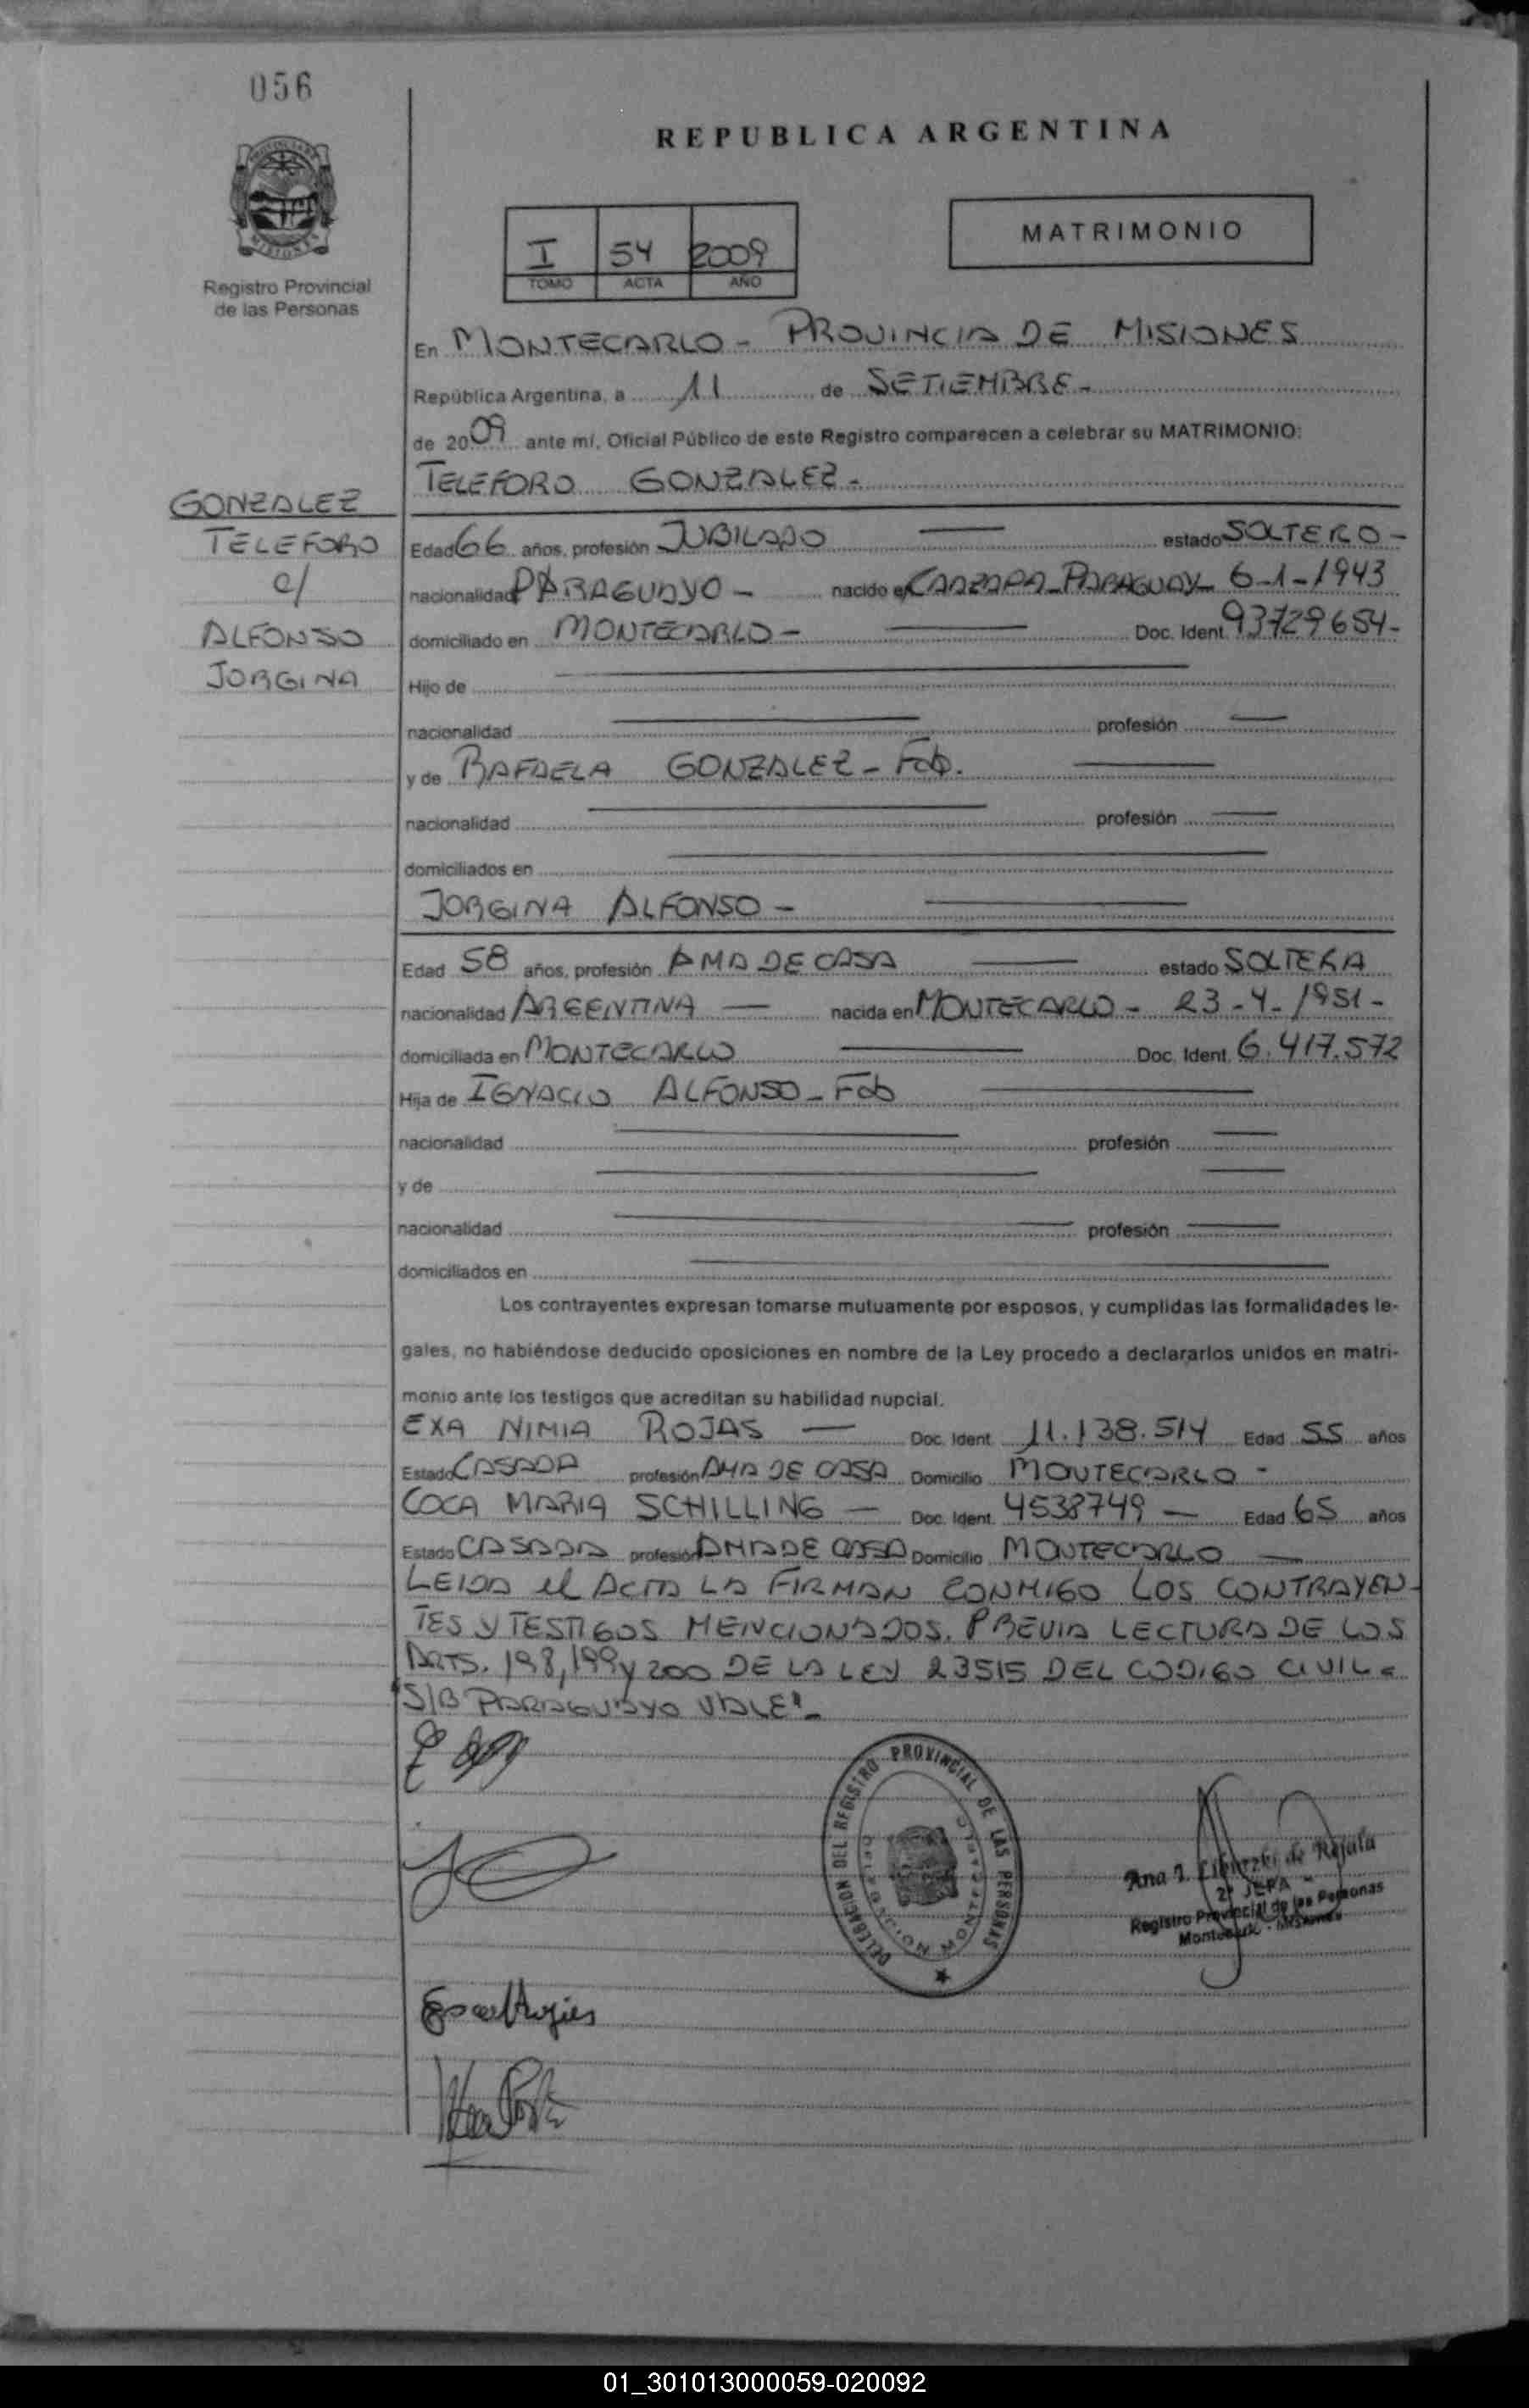 056
REPUBLICA ARGENTINA
MATRIMONIO
I 54 2009
TOMO ACTA AÑO
Registro Provincial
de las Personas
En MONTECARLO - PROVINCIA DE MISIONES
República Argentina, a 11 de SETIEMBRE -
de 2009 ante mí, Oficial Público de este Registro comparecen a celebrar su MATRIMONIO:
TELEFORO GONZALEZ -
GONZALEZ
TELEFORO
c/
ALFONSO
JORGINA
Edad 66 años, profesión JUBILADO estado SOLTERO -
nacionalidad PARAGUAYO - nacido en CAAZAPA - PARAGUAY 6-1-1943
domiciliado en MONTECARLO - Doc. Ident. 93729654-
Hijo de
nacionalidad profesión
y de RAFAELA GONZALEZ - Fda.
nacionalidad profesión
domiciliados en
JORGINA ALFONSO -
Edad 58 años, profesión AMA DE CASA estado SOLTERA
nacionalidad ARGENTINA — nacida en MONTECARLO - 23-4-1951-
domiciliada en MONTECARLO Doc. Ident. 6.417.572
Hija de IGNACIO ALFONSO - Fdo
nacionalidad profesión
y de
nacionalidad profesión
domiciliados en
Los contrayentes expresan tomarse mutuamente por esposos, y cumplidas las formalidades le-
gales, no habiéndose deducido oposiciones en nombre de la Ley procedo a declararlos unidos en matri-
monio ante los testigos que acreditan su habilidad nupcial.
EXA NIMIA ROJAS — Doc. Ident. 11.138.514 Edad 55 años
Estado CASADA profesión AMA DE CASA Domicilio MONTECARLO -
COCA MARIA SCHILLING — Doc. Ident. 4538749 — Edad 65 años
Estado CASADA profesión AMA DE CASA Domicilio MONTECARLO —
LEIDA el ACTA LA FIRMAN CONMIGO LOS CONTRAYEN-
TES Y TESTIGOS MENCIONADOS. PREVIA LECTURA DE LOS
ARTS. 198, 199 y 200 DE LA LEY 23515 DEL CODIGO CIVIL -
"S/B PARAGUAYO VALE" -
DELEGACION DEL REGISTRO PROVINCIAL DE LAS PERSONAS
Ana I. de
2º JEFA
Registro Provincial de las Personas
Montecarlo - Misiones
01_301013000059-020092